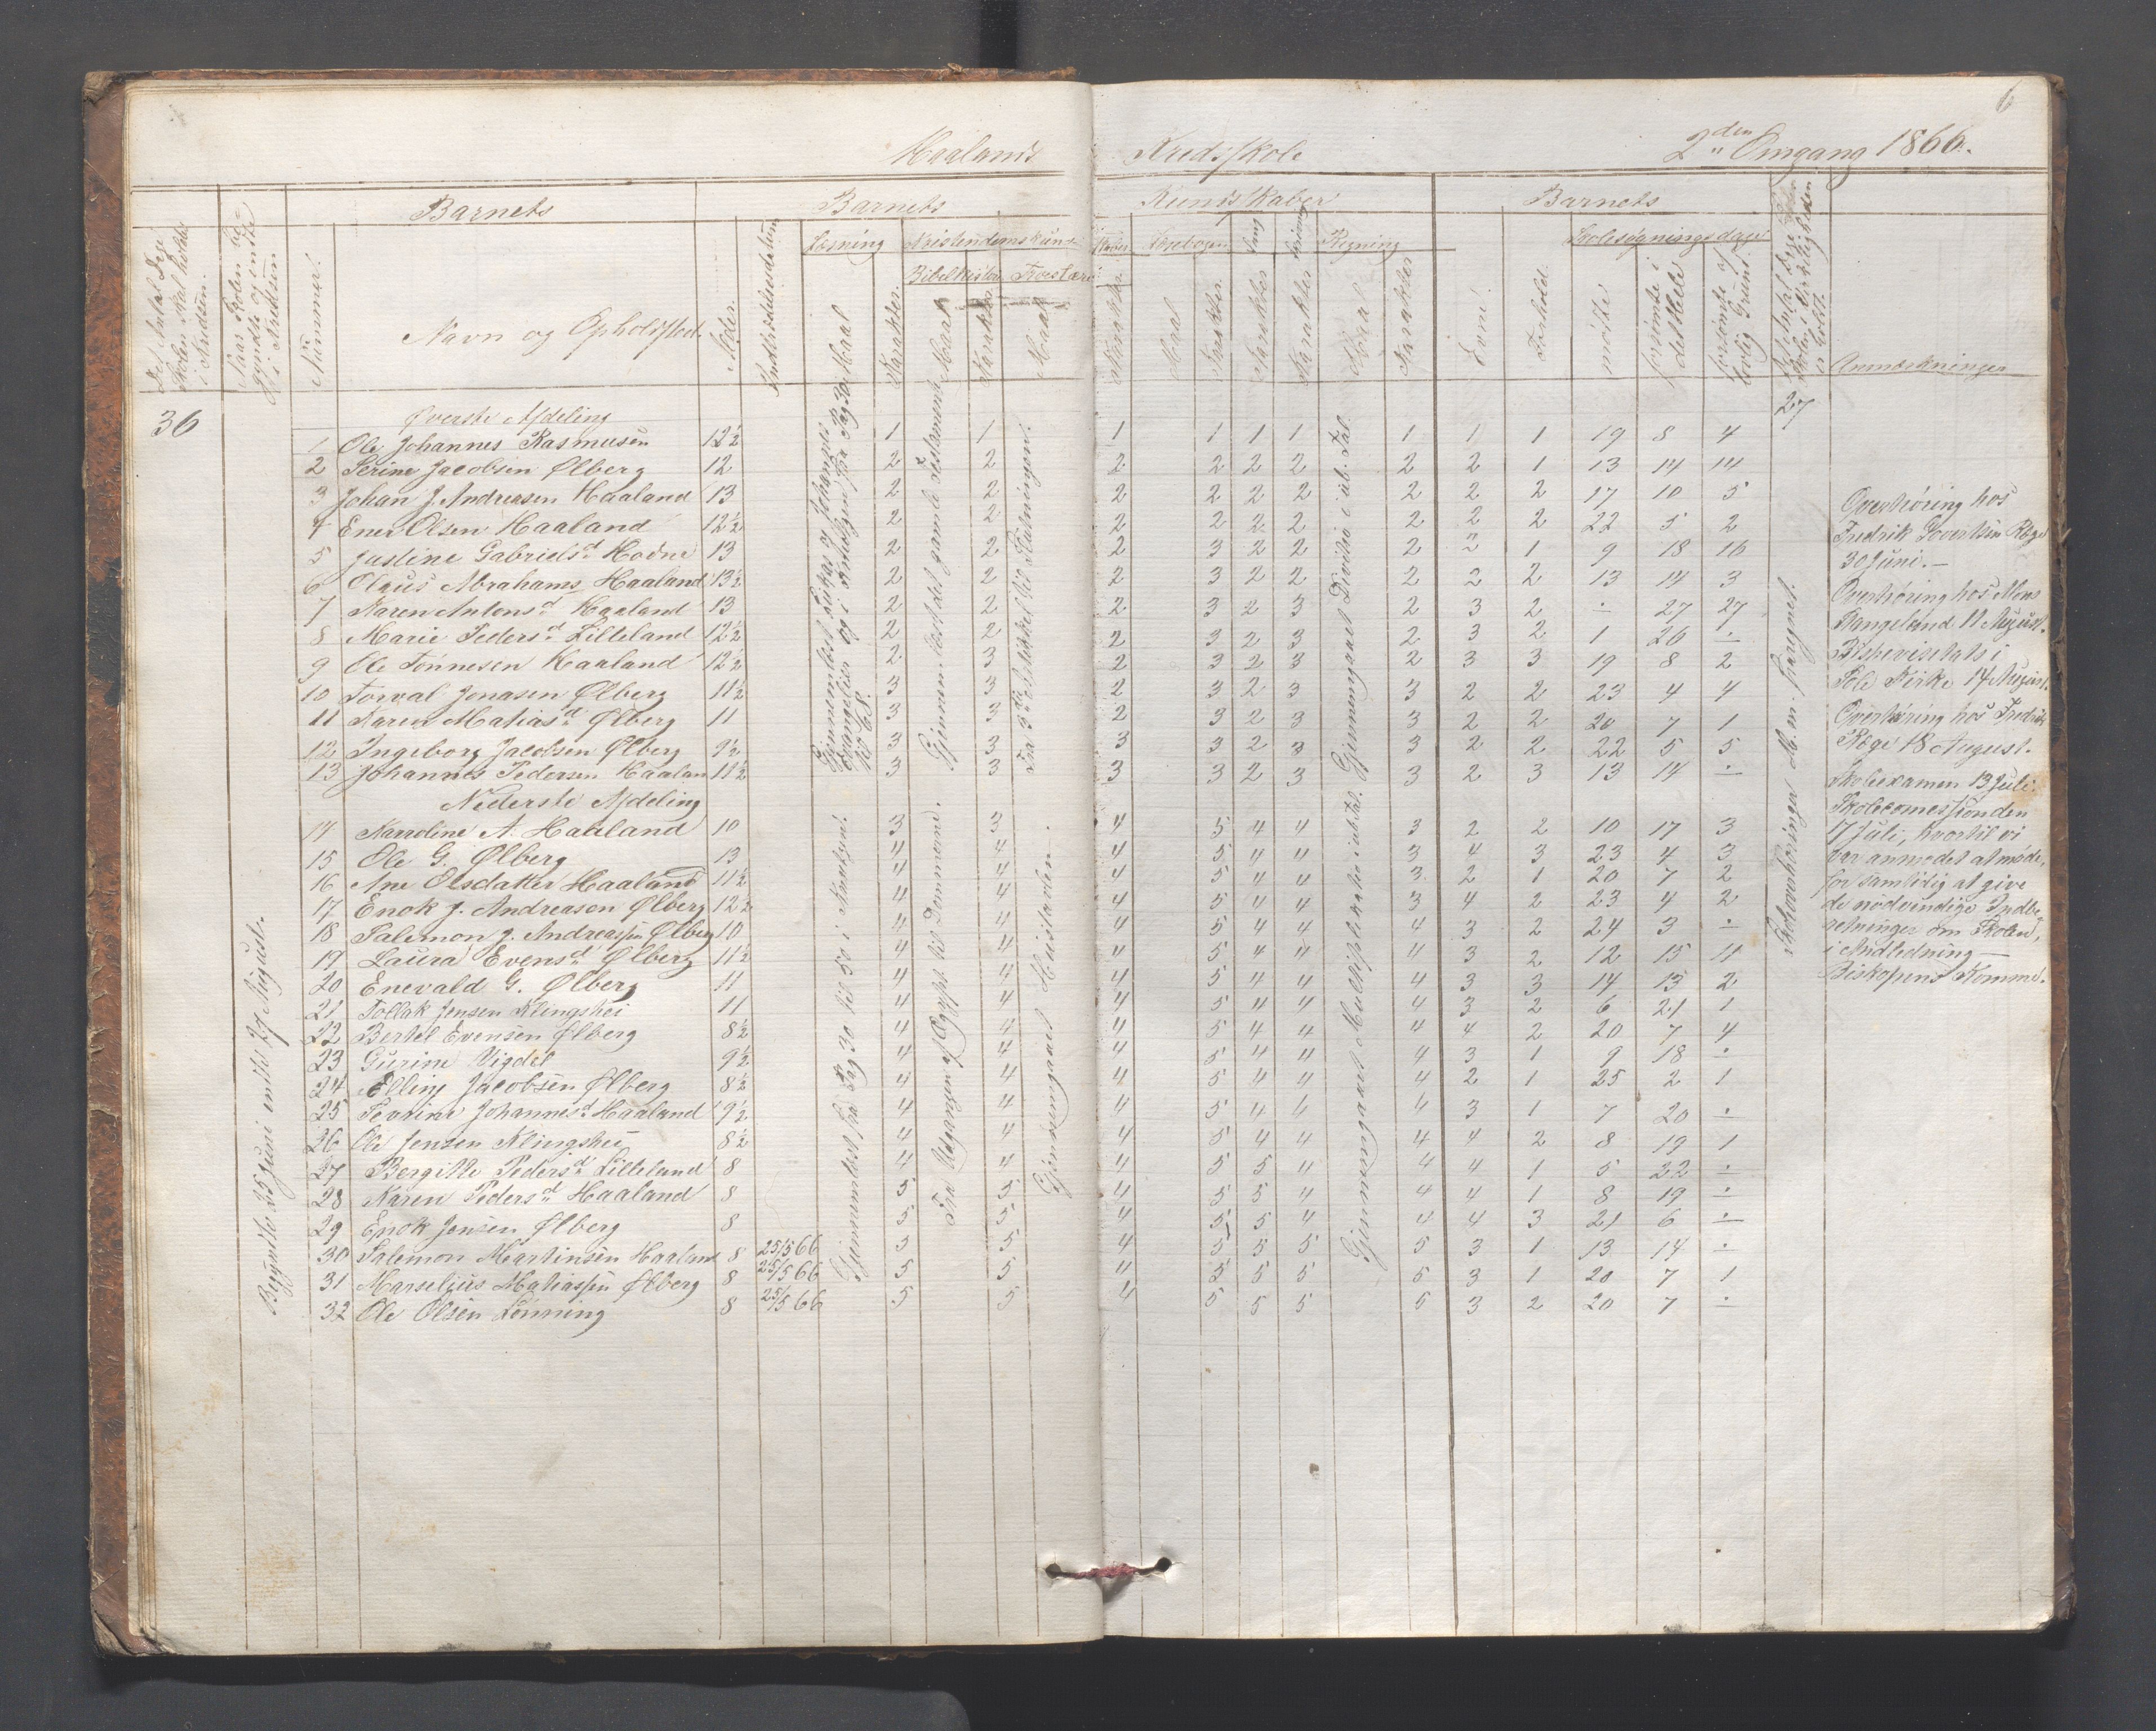 6
Haalands Kredsskole 2den Omgang 1866.
Barnets Barnets Kundskaber Barnets
Læsning Kristendomskund Læsebogen Sang Skrivning Regning Skolesøgningsdage
Bibelhistorie Troeslære
Det Antal Dage Skolen skal holdes i Kredsen.
Naar Skolen begyndte og endte i Kredsen
Nummer.
Navn og Opholdssted.
Alder.
Indtrædelsesdatum
Maal Karakter. Maal Karakter Maal Karakter. Maal Karakter. Karakter Karakter Maal Karakter Evne. Forhold. mødte forsømte i det Hele forsømte af lovlig Grund.
Anmærkninger
36
27
Øverste Afdeling
1 Ole Johannes Rasmusen 12½ 1 1 1 1 1 1 1 1 1 19 8 4
2 Serine Jacobsen Ølberg 12 2 2 2 2 2 2 2 2 1 13 14 14
3 Johan J. Andreasen Haaland 13 2 2 2 2 2 2 2 2 2 17 10 5
4 Ener Olsen Haaland 12½ 2 2 2 2 2 2 2 2 2 22 5 2
5 Justine Gabrielsd. Hodne 13 2 2 2 3 2 2 2 2 1 9 18 16
6 Olaus Abrahams Haaland 13½ 2 2 2 3 2 2 2 2 2 13 14 3
7 Karen Antonsd. Haaland 13 2 2 2 3 2 3 2 3 2 ÷ 27 27
8 Marie Pedersd. Lilleland 12½ 2 2 2 3 2 3 2 3 2 1 26 ÷
9 Ole Tønnesen Haaland 12½ 2 3 2 3 2 3 2 3 3 19 8 2
10 Torval Jonasen Ølberg 11½ 3 3 2 3 2 3 3 2 2 23 4 4
11 Karen Matiasd. Ølberg 11 3 3 2 3 2 3 3 2 2 20 7 1
12 Ingeborg Jacobsen Ølberg 9½ 3 3 3 3 2 3 3 2 2 22 5 5
13 Johannes Pedersen Haaland 11½ 3 3 3 3 2 3 3 2 3 13 14 ÷
Nederste Afdeling
14 Karoline A. Haaland 10 3 3 4 5 4 4 3 2 2 10 17 3
15 Ole G. Ølberg 13 4 4 4 5 4 4 3 4 3 23 4 3
16 Ane Olsdatter Haaland 11½ 4 4 4 5 4 4 3 2 1 20 7 2
17 Enok J. Andreasen Ølberg 12½ 4 4 4 5 4 4 3 4 2 23 4 2
18 Salemon J. Andreassen Ølberg 10 4 4 4 5 4 4 4 3 2 24 3 ÷
19 Laura Evensd. Ølberg 11½ 4 4 4 5 4 4 4 3 2 12 15 11
20 Enevald G. Ølberg 11 4 4 4 5 4 4 4 3 3 14 13 2
21 Tollak Jensen Klingshei 11 4 4 4 5 4 4 4 3 2 6 21 1
22 Bertel Evensen Ølberg 8½ 4 4 4 5 4 4 4 4 2 20 7 4
23 Gurine Vigdel 9½ 4 4 4 5 4 4 4 3 1 9 18 ÷
24 Elling Jacobsen Ølberg 8½ 4 4 4 5 4 4 4 2 1 25 2 1
25 Severine Johannesd. Haaland 9½ 4 4 4 5 4 4 4 3 1 7 20 ÷
26 Ole Jensen Klingshei 8½ 4 4 4 5 4 4 4 4 2 8 19 1
27 Bergitte Pedersd. Lilleland 8 4 4 4 5 5 4 4 4 1 5 22 ÷
28 Karen Pedersd. Haaland 8 5 5 4 5 5 4 4 4 1 8 19 ÷
29 Enok Jensen Ølberg 8 5 5 4 5 5 4 4 4 3 21 6 ÷
30 Salemon Martinsen Haaland 8 25/5 66 5 5 4 5 5 5 5 3 1 13 14 ÷
31 Marselius Matiassen Ølberg 8 25/5 66 5 5 4 5 5 5 5 3 1 20 7 1
32 Ole Olsen Lønning 8 25/5 66 5 5 4 5 5 5 5 3 2 20 7 ÷
Begyndte 25 Juni endte 27 August.
Gjennemlæst Lukas og Johannes
Evangelier og i Anhogen fra Pag. 30
til 68.
Gjennemlæst fra Pag 30 til 50 i
Gjennemlæst det gamle Testamente.
Fra Udgangen af Ægypt. til Dommerne.
Fra 3die Artikkel til Slutningen.
Gjennemgaaet Huistavlen.
Gjennemgaaet Division i ub. Tal.
Gjennemgaaet Multiplikation i ub. tal.
Overhøring hos
Fredrik Govertsen Røge
30 Juni. —
Overhøring hos Mons
Vangeland 11 August.
Bispevisitats i
Sole Kirke 14 August.
Overhøring hos Fredrik
Røge 18 August.
Skoleexamen 13 Juli.
Skolecomessionden
17 Juli, hvortil vi
var anmodet at møde,
for samtidig at give
de nødvendige Indbe-
retninger om Skolen,
i Andledning —
Biskopens Komme.